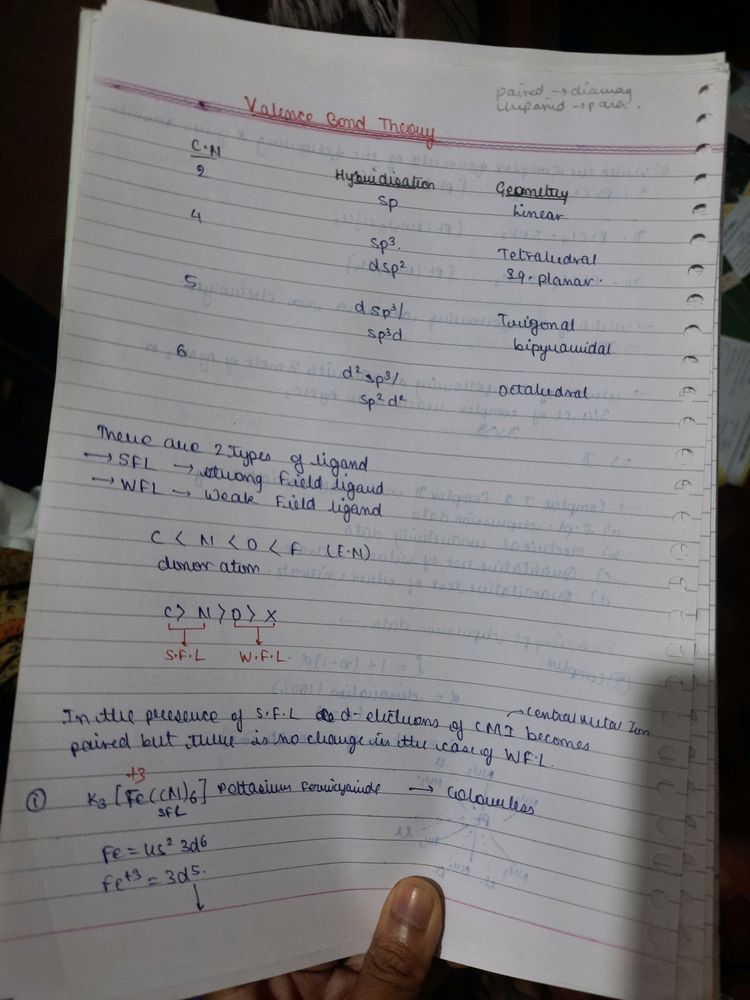 paired → diamag
Unpaired → para.
Valence Bond Theory
C.N Hybridisation Geometry
2 sp Linear
4 sp³. Tetrahedral
dsp² sq. planar.
5 dsp³/ Trigonal
sp³d bipyramidal
6 d²sp³/ Octahedral
sp²d²
There are 2 Types of ligand
→ SFL → strong Field ligand
→ WFL → Weak Field ligand
C < N < O < F (E.N)
donor atom
C > N > O > X
S.F.L W.F.L.
In the presence of S.F.L d-electrons of CMI becomes → Central Metal Ion
paired but there is no change in the case of WFL.
+3
① K₃ [Fe(CN)₆] Pottasium Ferricyanide → Colourless
SFL
Fe = 4s² 3d⁶
Fe⁺³ = 3d⁵.
↓